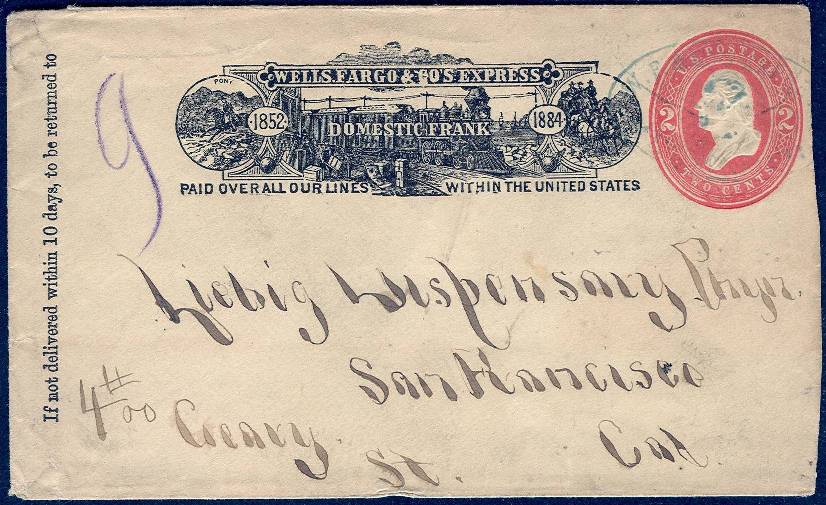 If not delivered within 10 days, to be returned to
9
PONY
WELLS, FARGO & CO'S EXPRESS
1852
DOMESTIC FRANK
1884
PAID OVER ALL OUR LINES WITHIN THE UNITED STATES
U.S. POSTAGE
2 2
TWO CENTS
Liebig Dispensary
San Francisco
400
Geary St.
Cal.